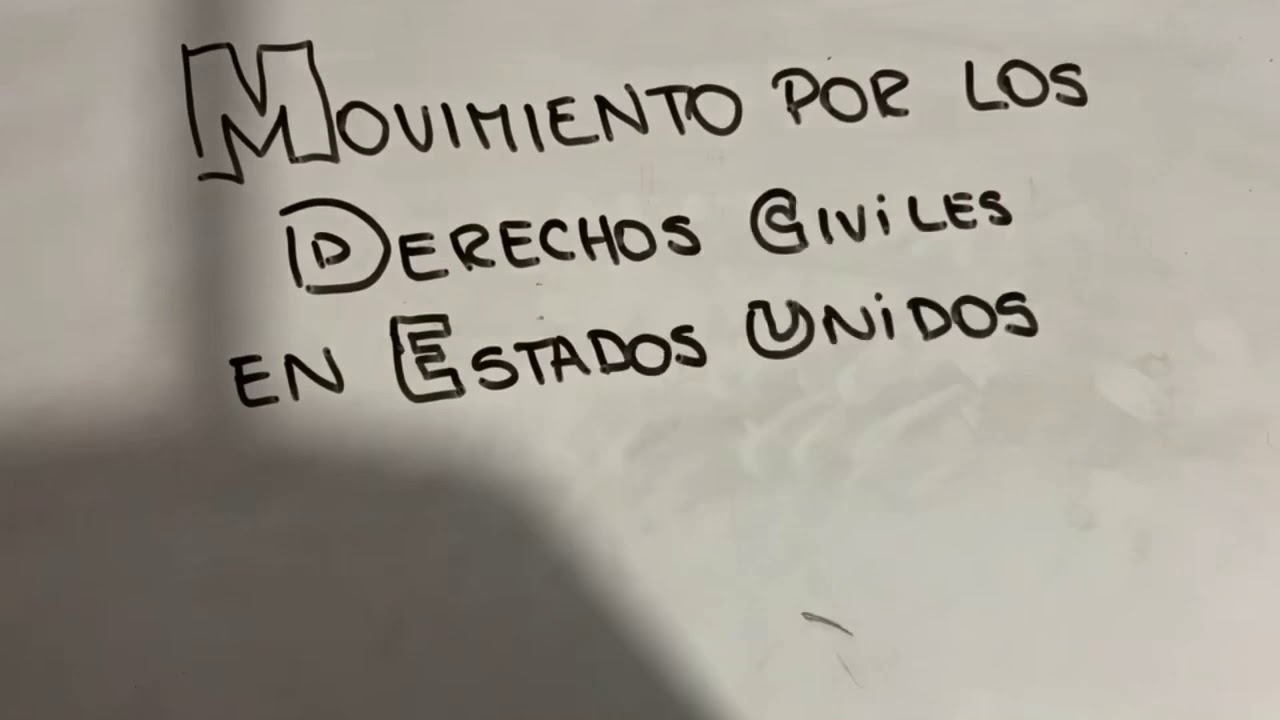 MOVIMIENTO POR LOS
DERECHOS CIVILES
EN ESTADOS UNIDOS